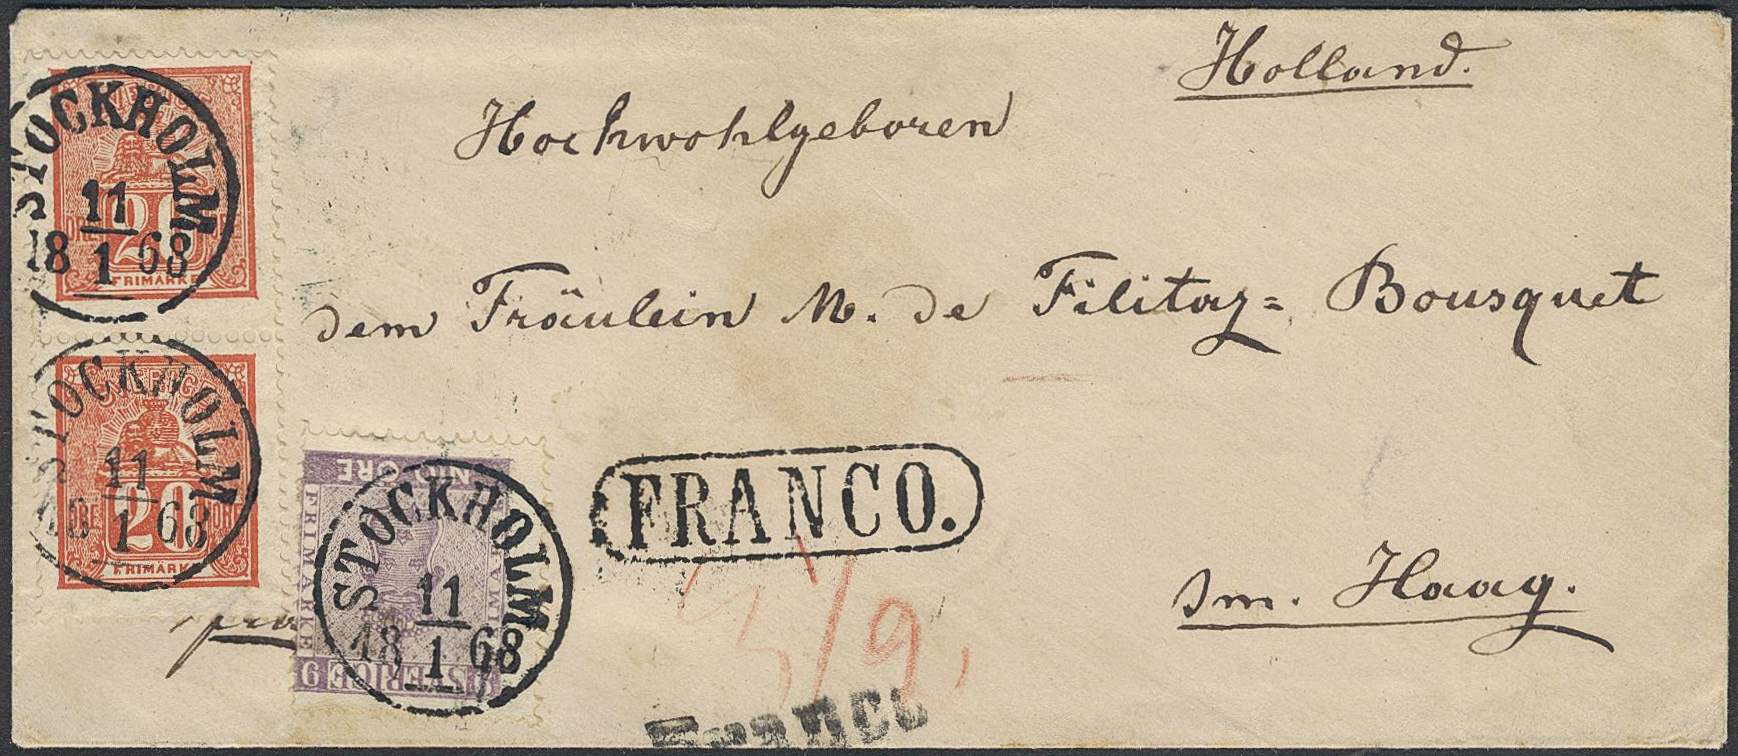 Holland.
Hochwohlgeboren
dem Fräulein M. de Filitaz= Bousquet
im. Haag.
FRANCO.
Franco
3/9.
STOCKHOLM
11
18 1 68
20
FRIMÄRKE
STOCKHOLM
11
1 68
20
FRIMÄRKE
NIO ÖRE
FRIMÄRKE
9 SVERIGE
STOCKHOLM
11
18 1 68